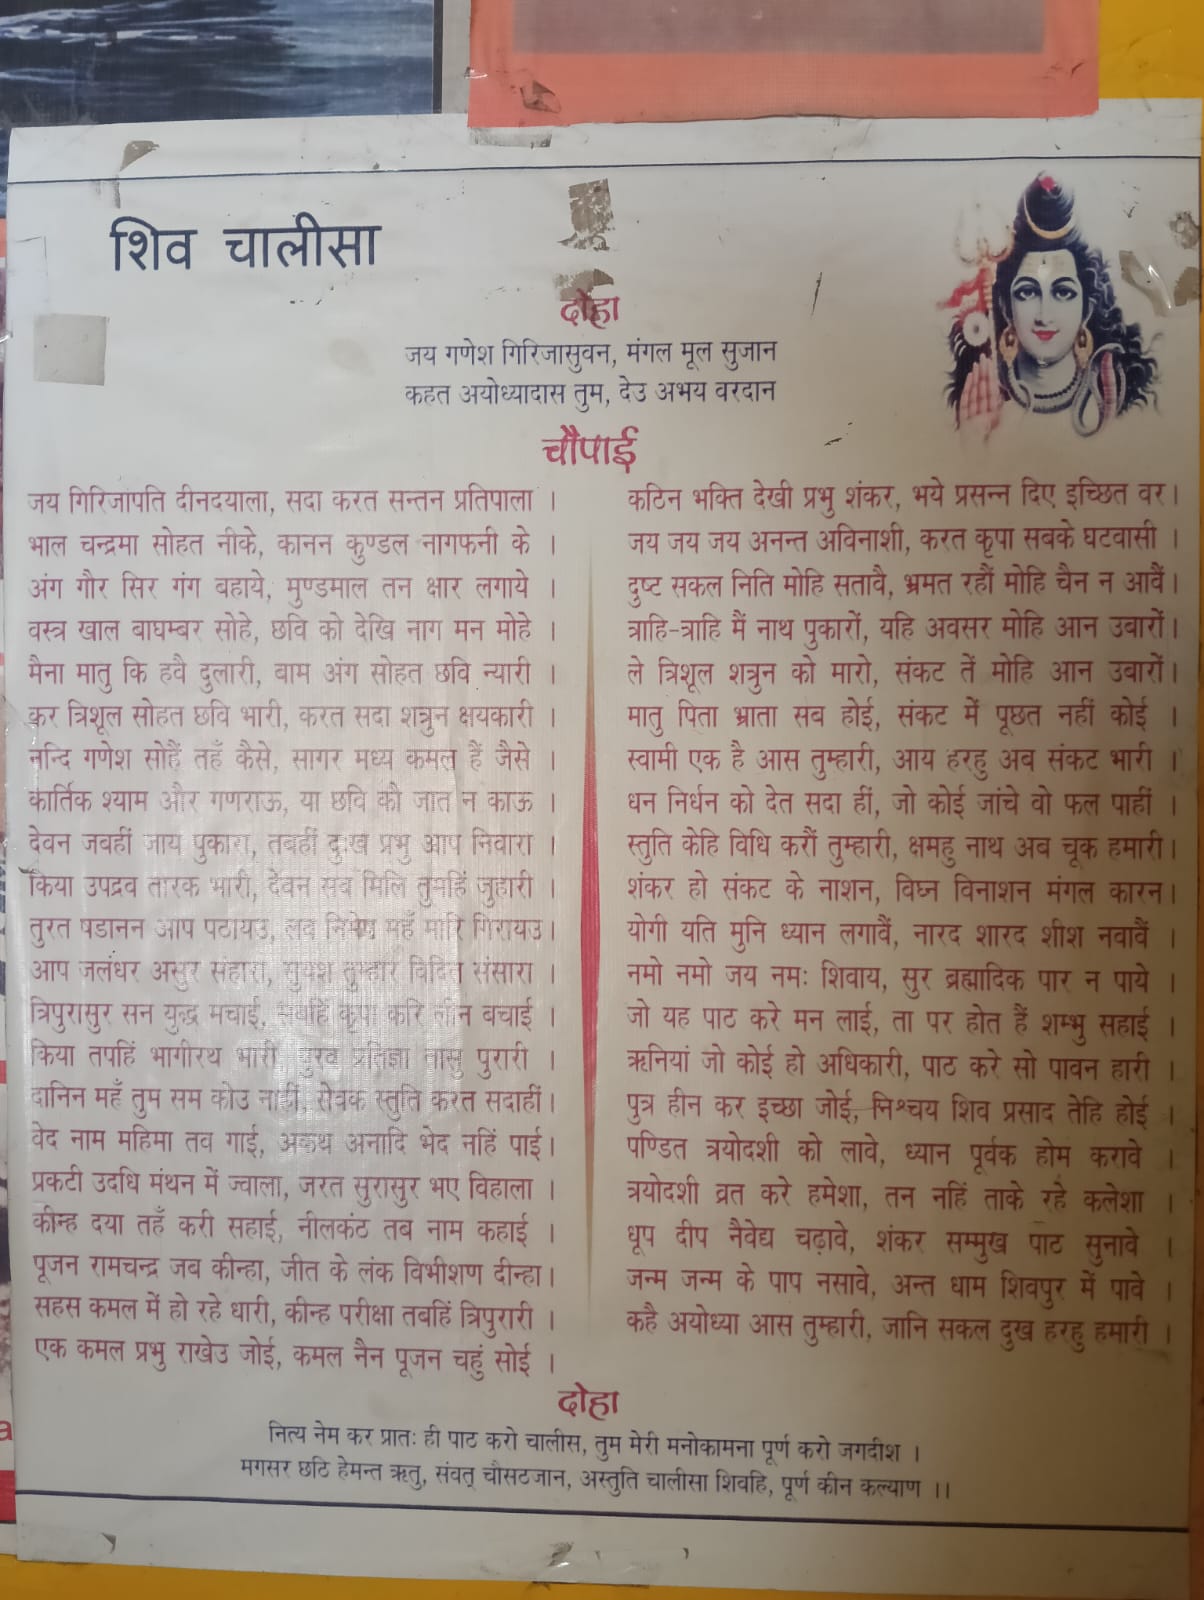 शिव चालीसा
दोहा
जय गणेश गिरिजासुवन, मंगल मूल सुजान
कहत अयोध्यादास तुम, देउ अभय वरदान
चौपाई
जय गिरिजापति दीनदयाला, सदा करत सन्तन प्रतिपाला ।
भाल चन्द्रमा सोहत नीके, कानन कुण्डल नागफनी के ।
अंग गौर सिर गंग बहाये, मुण्डमाल तन क्षार लगाये ।
वस्त्र खाल बाघम्बर सोहे, छवि को देखि नाग मन मोहे ।
मैना मातु कि हवै दुलारी, वाम अंग सोहत छवि न्यारी ।
कर त्रिशूल सोहत छवि भारी, करत सदा शत्रुन क्षयकारी ।
नन्दि गणेश सोहैं तहँ कैसे, सागर मध्य कमल हैं जैसे ।
कार्तिक श्याम और गणराऊ, या छवि की जात न काऊ ।
देवन जबहीं जाय पुकारा, तबहीं दुःख प्रभु आप निवारा ।
किया उपद्रव तारक भारी, देवन सब मिलि तुमहिं जुहारी ।
तुरत षडानन आप पठायउ, लव निमेष महँ मारि गिरायउ ।
आप जलंधर असुर संहारा, सुयश तुम्हार विदित संसारा ।
त्रिपुरासुर सन युद्ध मचाई, कृपा करि बचाई ।
किया तपहिं भागीरथ भारी, पुरव प्रतिज्ञा तासु पुरारी ।
दानिन महँ तुम सम कोउ नाहीं, सेवक स्तुति करत सदाहीं ।
वेद नाम महिमा तव गाई, अकथ अनादि भेद नहिं पाई ।
प्रकटी उदधि मंथन में ज्वाला, जरत सुरासुर भए विहाला ।
कीन्ह दया तहँ करी सहाई, नीलकंठ तब नाम कहाई ।
पूजन रामचन्द्र जब कीन्हा, जीत के लंक विभीशण दीन्हा ।
सहस कमल में हो रहे धारी, कीन्ह परीक्षा तबहिं त्रिपुरारी ।
एक कमल प्रभु राखेउ जोई, कमल नैन पूजन चहुं सोई ।
कठिन भक्ति देखी प्रभु शंकर, भये प्रसन्न दिए इच्छित वर ।
जय जय जय अनन्त अविनाशी, करत कृपा सबके घटवासी ।
दुष्ट सकल निति मोहि सतावै, भ्रमत रहौं मोहि चैन न आवैं ।
त्राहि-त्राहि मैं नाथ पुकारों, यहि अवसर मोहि आन उबारों ।
ले त्रिशूल शत्रुन को मारो, संकट तें मोहि आन उबारों ।
मातु पिता भ्राता सब होई, संकट में पूछत नहीं कोई ।
स्वामी एक है आस तुम्हारी, आय हरहु अब संकट भारी ।
धन निर्धन को देत सदा हीं, जो कोई जांचे वो फल पाहीं ।
स्तुति केहि विधि करौं तुम्हारी, क्षमहु नाथ अब चूक हमारी ।
शंकर हो संकट के नाशन, विघ्न विनाशन मंगल कारन ।
योगी यति मुनि ध्यान लगावैं, नारद शारद शीश नवावैं ।
नमो नमो जय नमः शिवाय, सुर ब्रह्मादिक पार न पाये ।
जो यह पाठ करे मन लाई, ता पर होत हैं शम्भु सहाई ।
ऋनियां जो कोई हो अधिकारी, पाठ करे सो पावन हारी ।
पुत्र हीन कर इच्छा जोई, निश्चय शिव प्रसाद तेहि होई ।
पण्डित त्रयोदशी को लावे, ध्यान पूर्वक होम करावे ।
त्रयोदशी व्रत करे हमेशा, तन नहिं ताके रहे कलेशा ।
धूप दीप नैवेद्य चढ़ावे, शंकर सम्मुख पाठ सुनावे ।
जन्म जन्म के पाप नसावे, अन्त धाम शिवपुर में पावे ।
कहै अयोध्या आस तुम्हारी, जानि सकल दुख हरहु हमारी ।
दोहा
नित्य नेम कर प्रातः ही पाठ करो चालीस, तुम मेरी मनोकामना पूर्ण करो जगदीश ।
मगसर छठि हेमन्त ऋतु, संवत् चौसटजान, अस्तुति चालीसा शिवहि, पूर्ण कीन कल्याण ।।